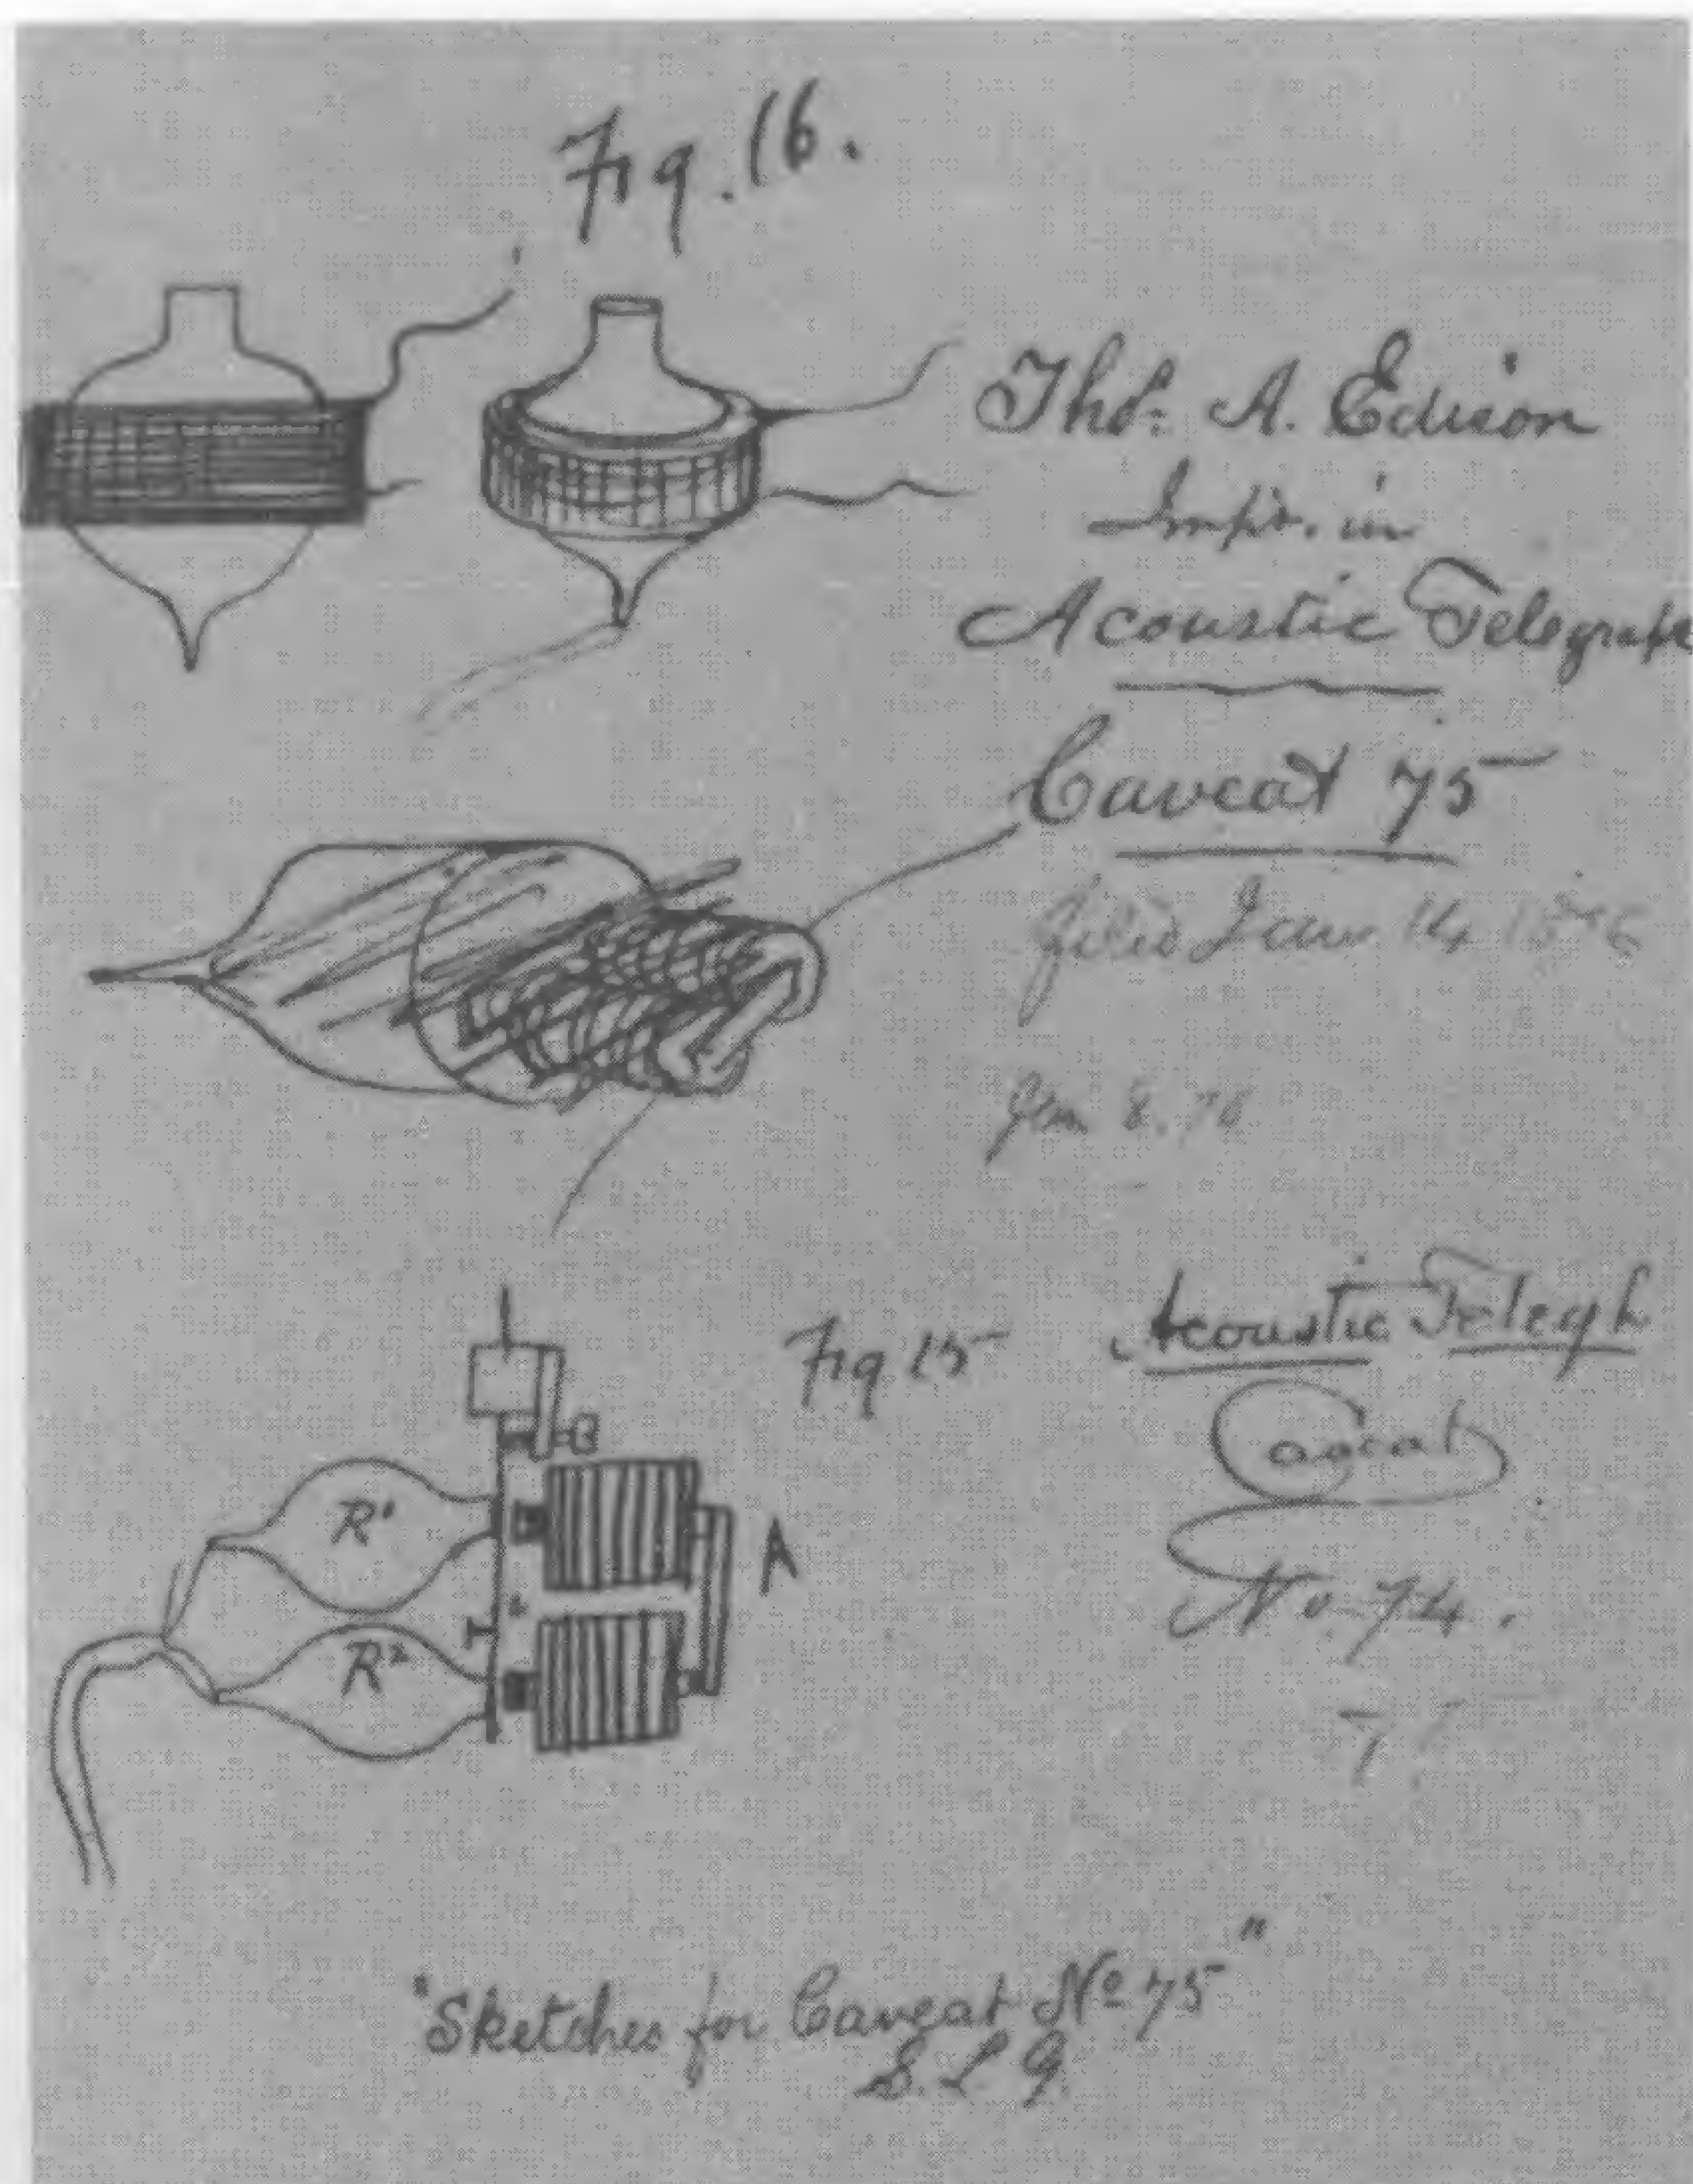 Fig. 16.
Thos. A. Edison
Impt. in
Acoustic Telegraph
Caveat 75
filed Jan 14 1876
Jan 8. 76
Fig 15
Acoustic Telegh
Caveat
No. 74.
75
R¹
A
R²
"Sketches for Caveat No 75"
S. L. G.